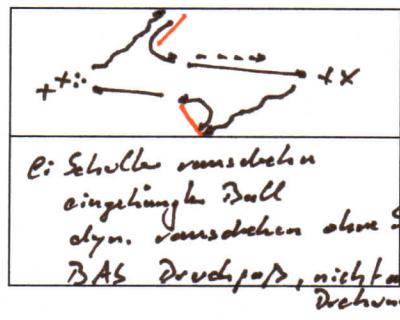 li Schulter rausdrehn
eingehüngter Ball
dyn. rausdrehen ohne
BAS Druckpaß, nicht
Drehun